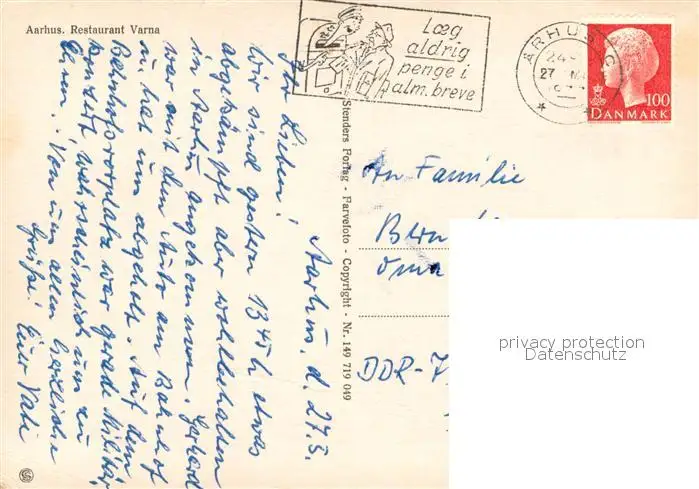 Aarhus. Restaurant Varna
Læg
aldrig
penge i
alm. breve
ÅRHUS C
27
100
DANMARK
Stenders Forlag - Farvefoto - Copyright - Nr. 149 719 049
Aarhus, d. 27.5.
Ihr Lieben!
Wir sind gestern 13 45 h etwas
abgekämpft aber wohlbehalten
in Aarhus angekommen. Gerhard
war mit dem Auto am Bahnhof
u. hat uns abgeholt. Auf dem
Bahnhofsvorplatz war gerade Militär
konzert, wahrscheinlich uns zu
Ehren. Von uns allen herzliche
Grüße! Euer Vati
An Familie
DDR-7
privacy protection
Datenschutz